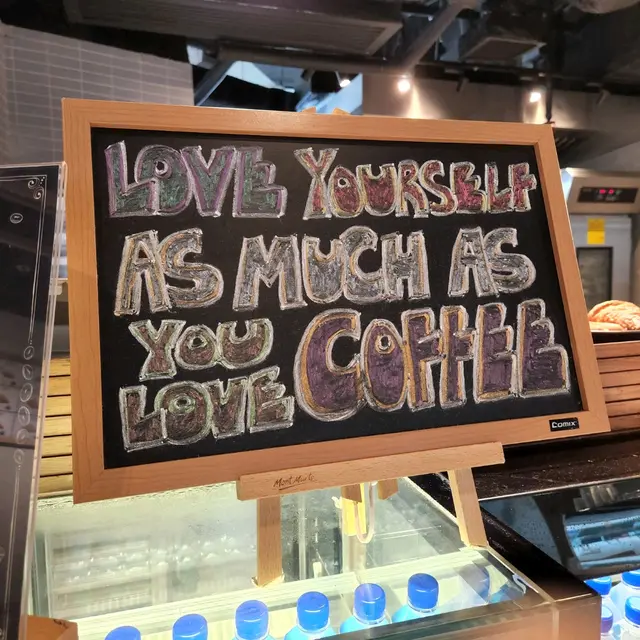 LOVE YOURSELF
AS MUCH AS
YOU COFFEE
LOVE
COMIX
Mont Marte